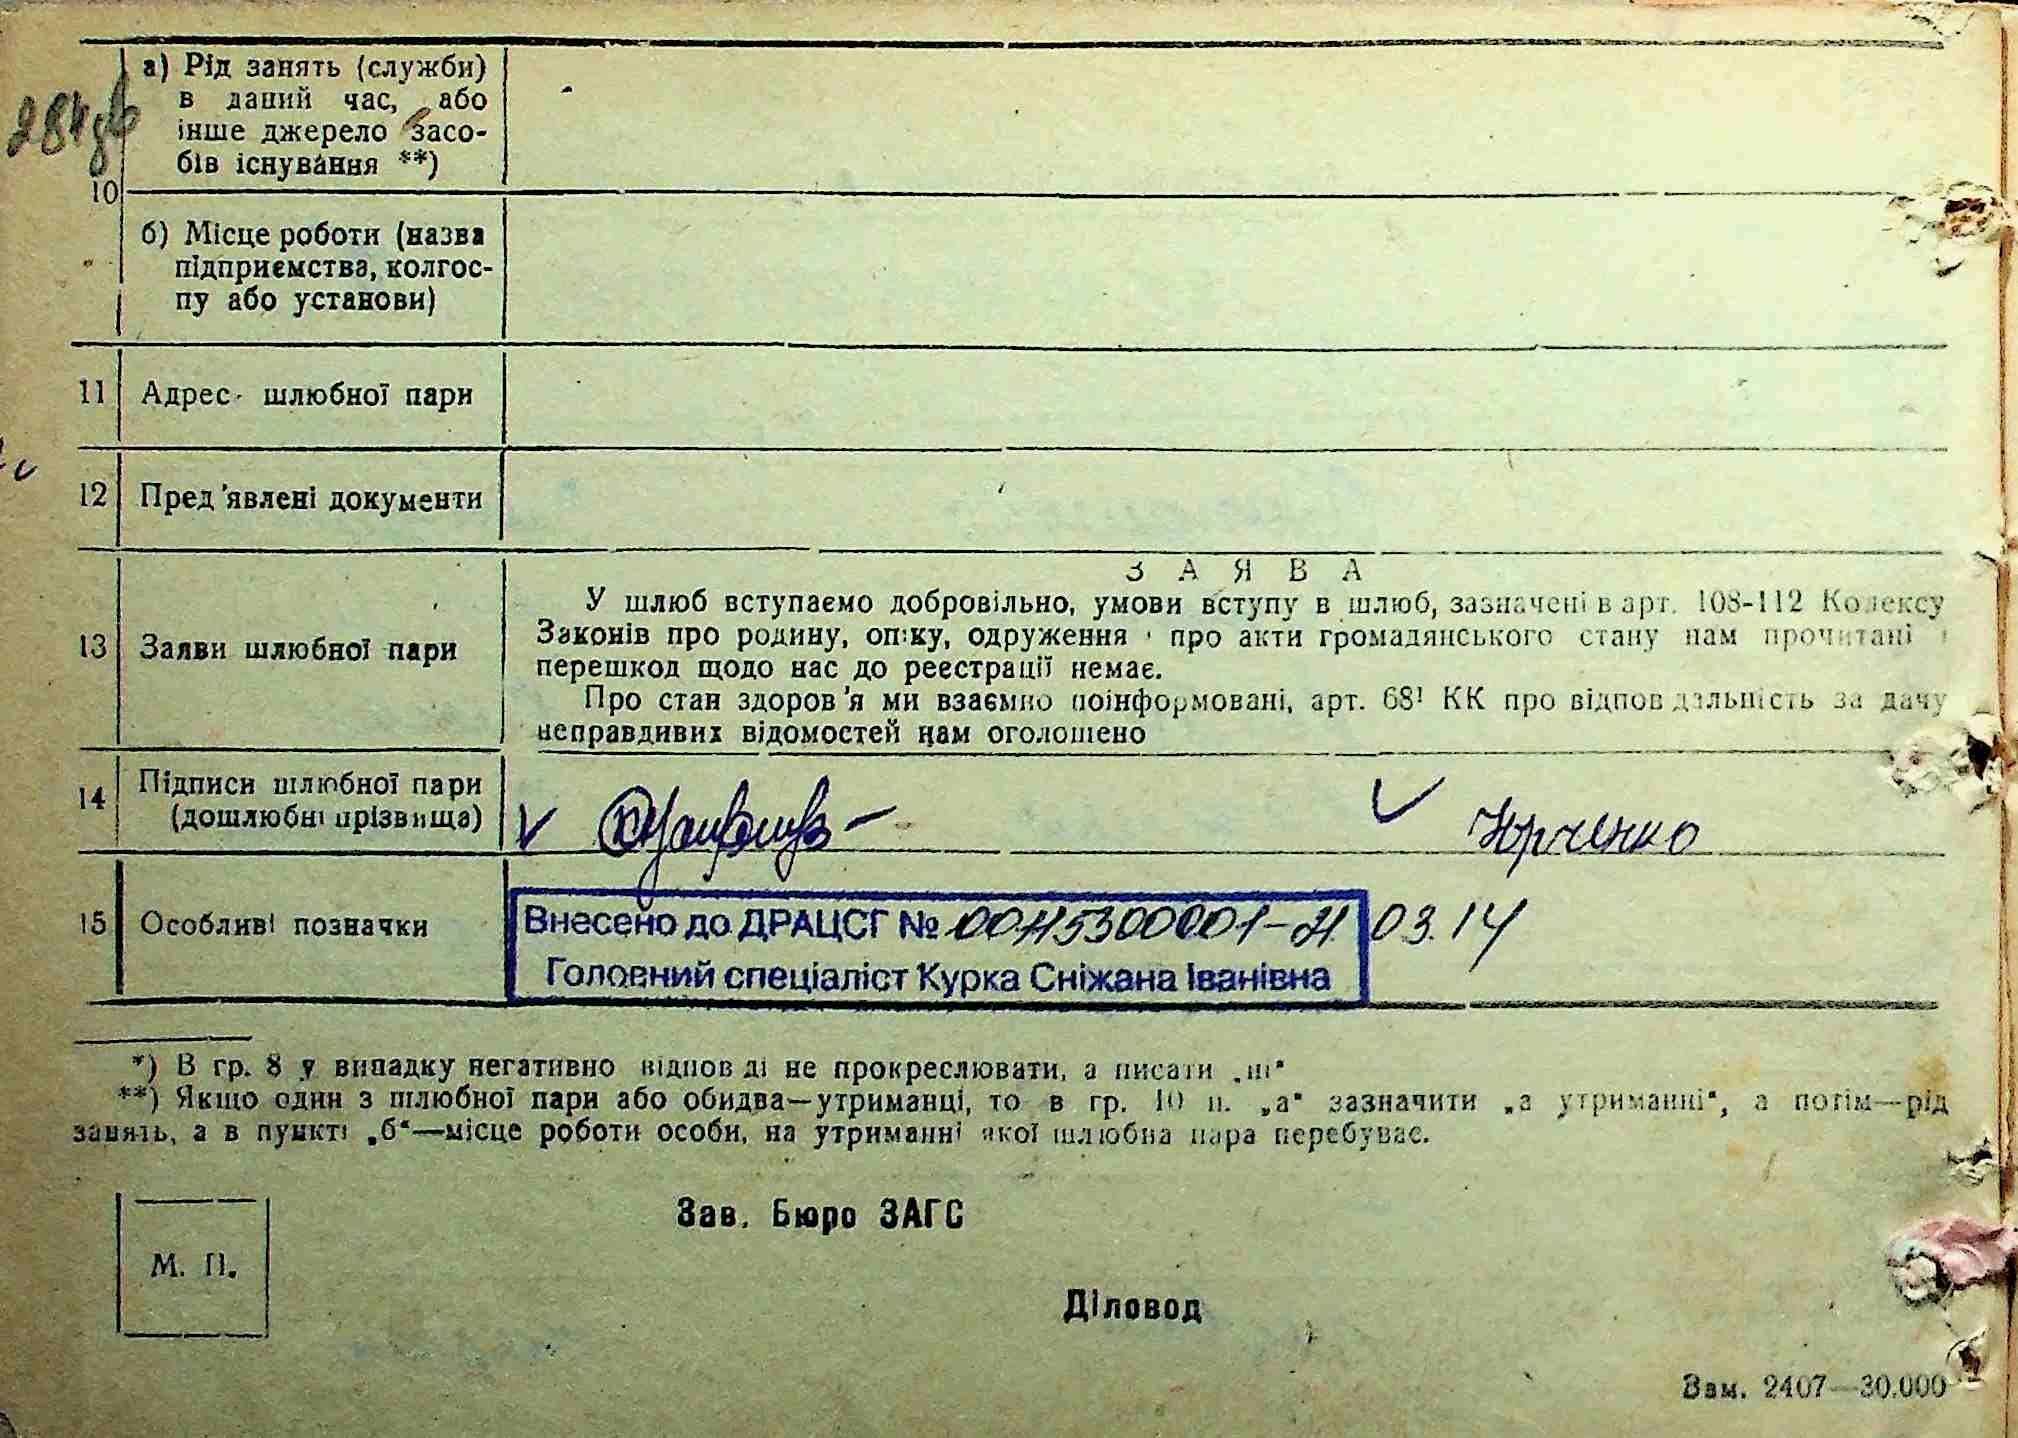 а) Рід занять (служби)
в даний час, або
інше джерело засо-
бів існування **)
10
б) Місце роботи (назва
підприємства, колгос-
пу або установи)
11 Адрес шлюбної пари
12 Пред'явлені документи
ЗАЯВА
13 Заяви шлюбної пари
У шлюб вступаємо добровільно, умови вступу в шлюб, зазначені в арт. 108-112 Кодексу
Законів про родину, опіку, одруження і про акти громадянського стану нам прочитані і
перешкод щодо нас до реєстрації немає.
Про стан здоров'я ми взаємно поінформовані, арт. 68¹ КК про відповідальність за дачу
неправдивих відомостей нам оголошено
14 Підписи шлюбної пари
(дошлюбні прізвища)
Юрченко
15 Особливі позначки
Внесено до ДРАЦСГ № 03.14
Головний спеціаліст Курка Сніжана Іванівна
*) В гр. 8 у випадку негативно відповіді не прокреслювати, а писати „ні“
**) Якщо один з шлюбної пари або обидва—утриманці, то в гр. 10 п. „а“ зазначити „а утриманні“, а потім—рід
занять, а в пункті „б“—місце роботи особи, на утриманні якої шлюбна пара перебуває.
Зав. Бюро ЗАГС
М. П.
Діловод
Зам. 2407—30.000